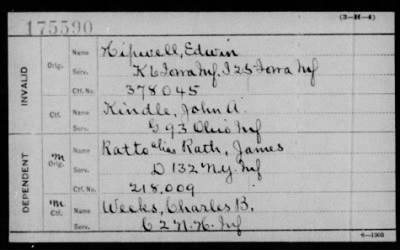 175590 (3-H-4)
INVALID Orig. Name Hipwell, Edwin
Serv. K 6 Iowa Inf. I 25 Iowa Inf
Ctf. No. 378045
Ctf. Name Kindle, John A.
Serv. G 93 Ohio Inf
DEPENDENT "M Orig. Name Katto alias Rath, James
Serv. D 132 N.Y. Inf
Ctf. No. 218,009
"M Ctf. Name Weeks, Charles B.
Serv. C 2 N.H. Inf
6-1303